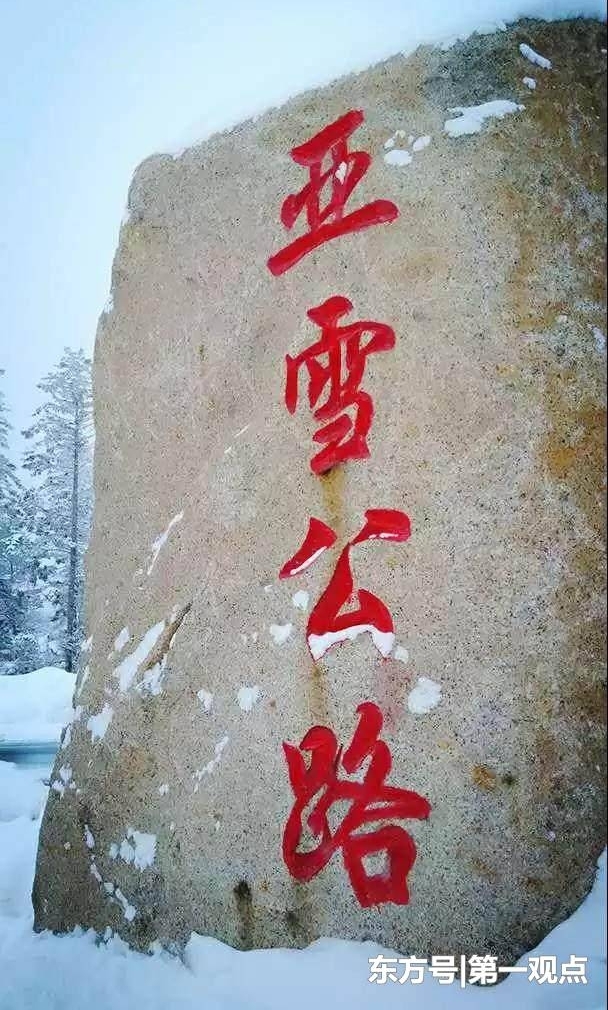 亚雪公路
东方号|第一观点